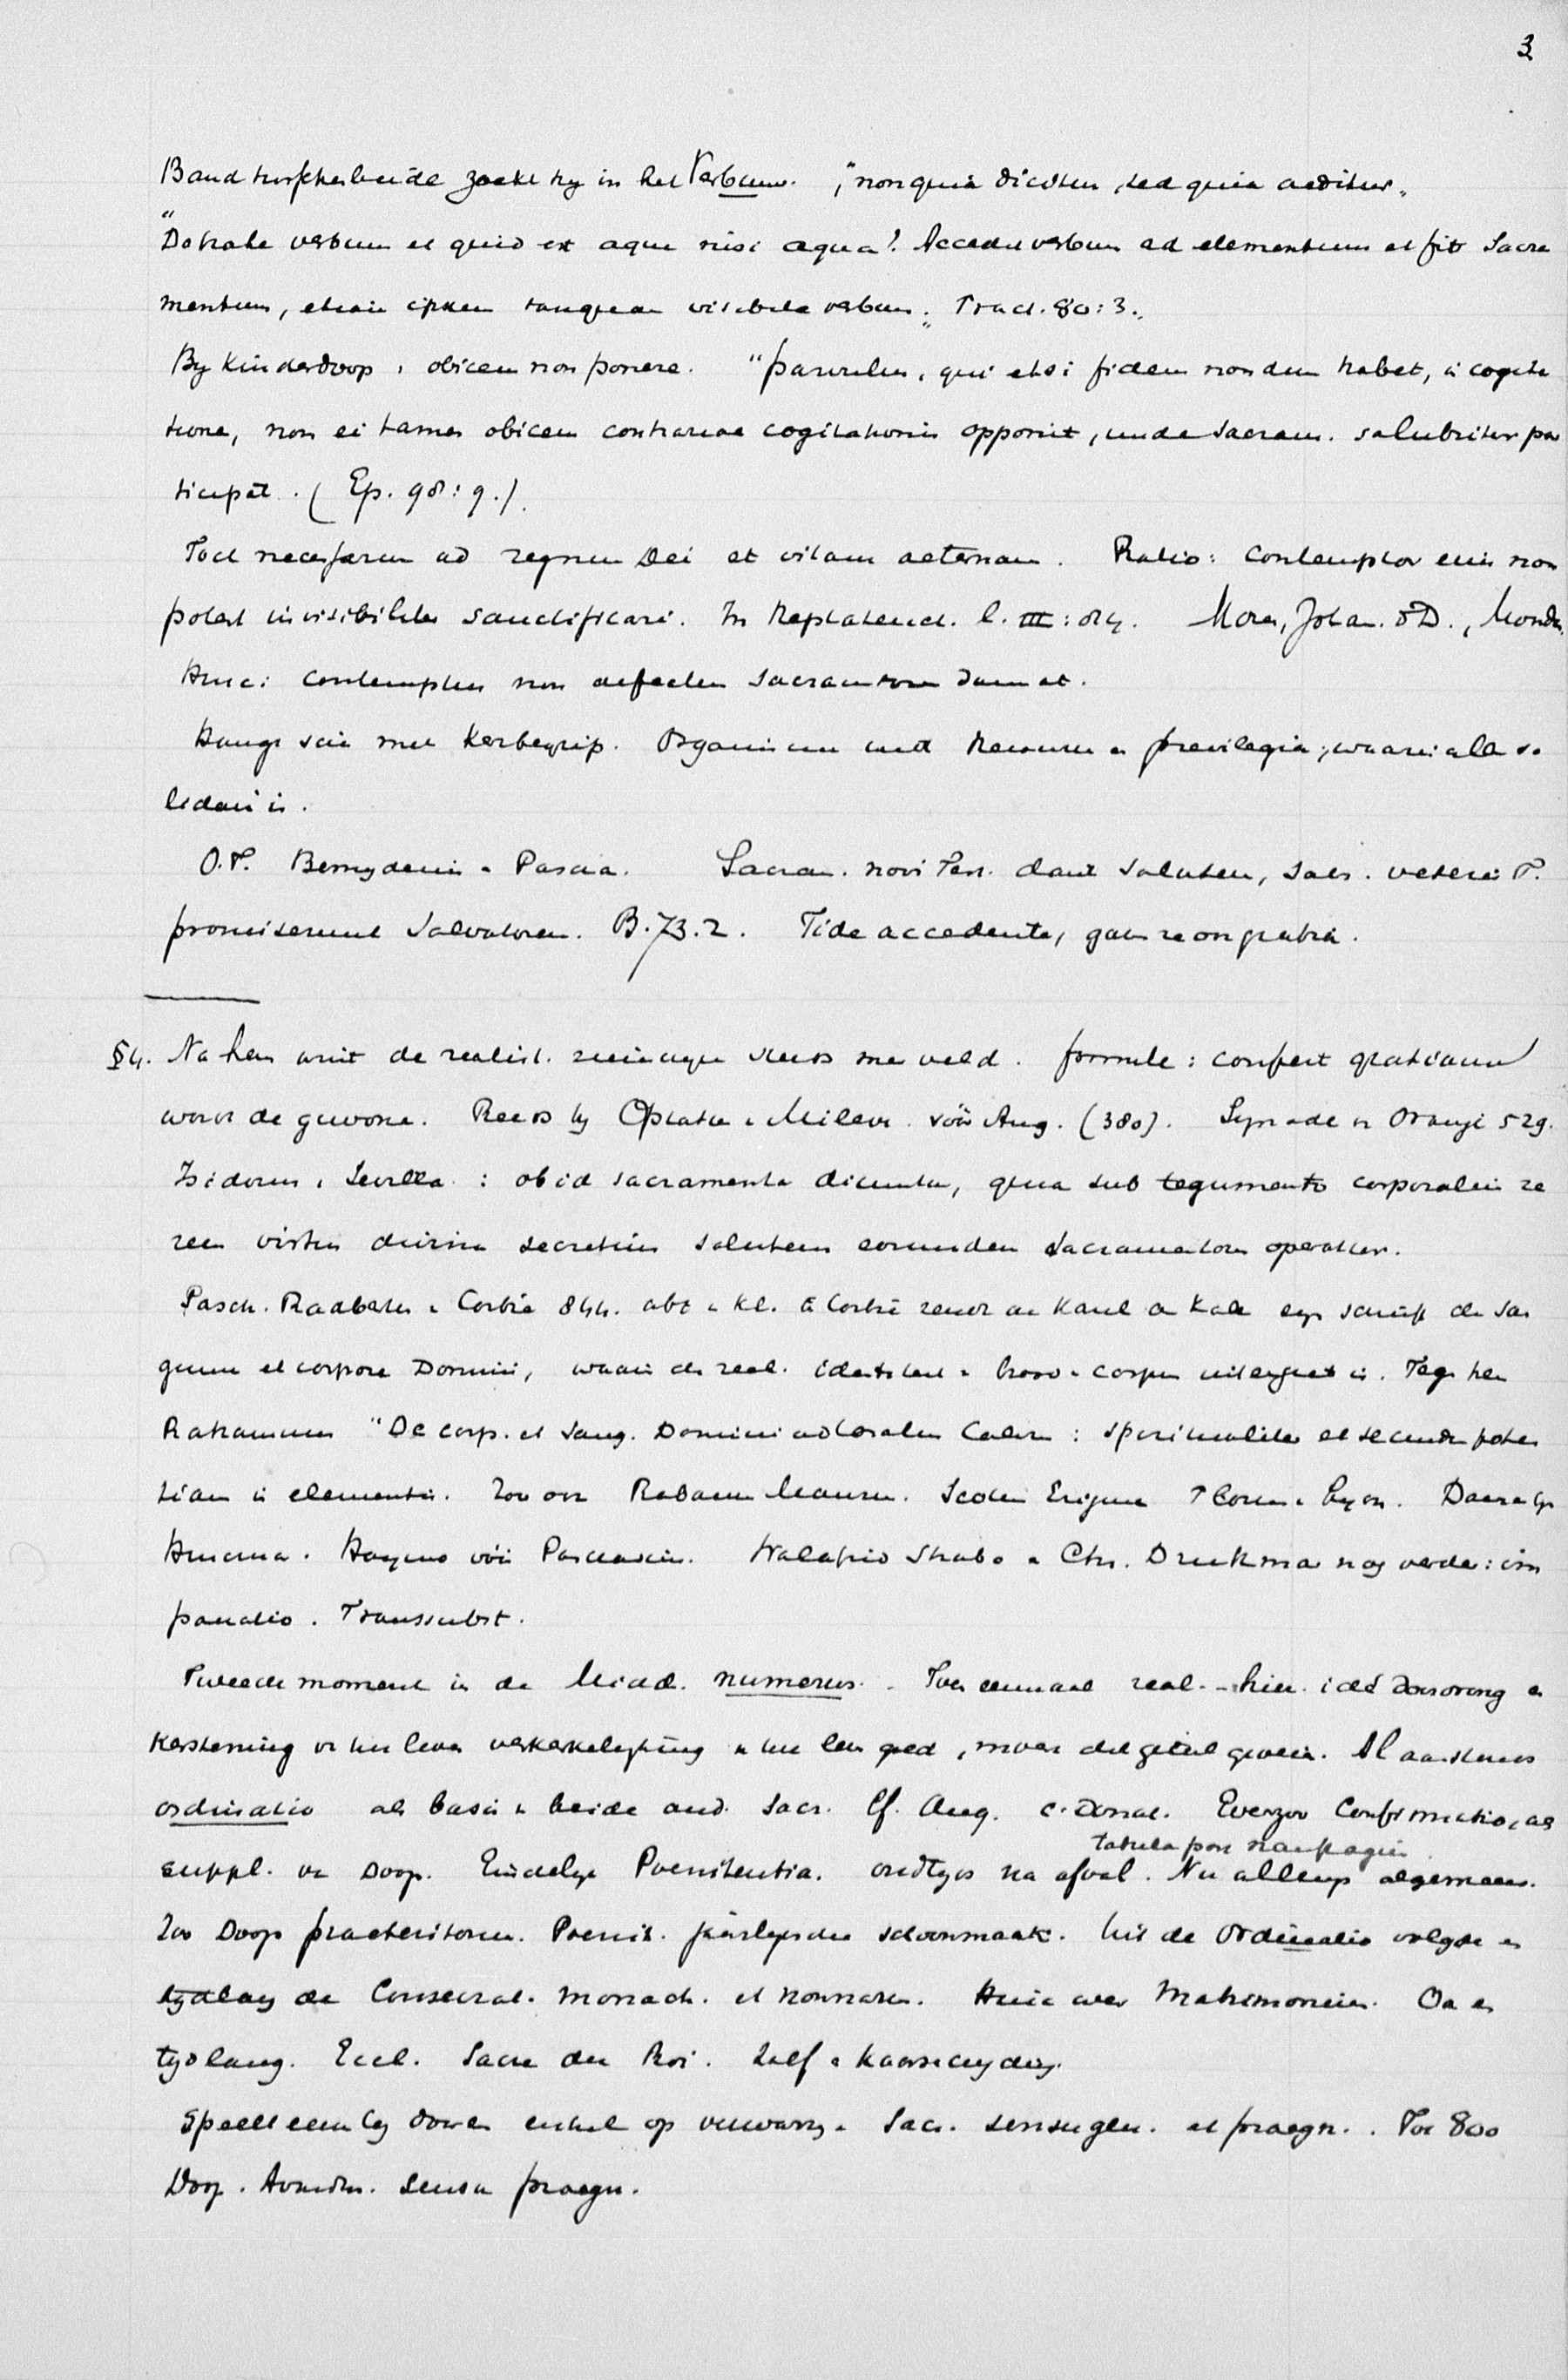 3
Band tusschen beide zoekt hy in het Verbum. "non quia dicitur, sed quia creditur"
"Detrahe verbum et quid est aqua nisi aqua? Accedit verbum ad elementum et fit Sacra
mentum, etiam ipsum tanquam visibile verbum." Tract. 80:3.
By Kinderdoop: obicem non ponere. "parvulus, qui etsi fidem nondum habet, in cogita
tione, non ei tamen obicem contrariae cogitationis opponit, unde sacram. salubriter par
ticipat. (Ep. 98:9.)
Toch necessarium ad regnum Dei et vitam aeternam. Ratio: Contemptor enim non
potest invisibiliter sanctificari. In Heptateuch. l. III: 84. Mozes, Johan. d D., Moord.
Hinc: contemptus non defectus sacramentorum damnat.
Hangt saam met Kerkbegrip. Organisme met privilegia, waarin alle so
lidair is.
O.T. Besnydenis en Pascha. Sacram. novi Test. dant salutem, sacr. veteris T.
promiserunt Salvatorem. B. 73.2. Fide accedente, gaven ze ook gratia.
§4. Na hem wint de realist. meening steeds meer veld. formule: confert gratiam
wordt de gewone. Reeds by Optatus v. Mileve vóór Aug. (380). Synode v Oranje 529.
Isidorus v. Sevilla: ob id sacramenta dicuntur, quia sub tegumento corporalium re
rum virtus divina secretius salutem eorundem sacramentorum operatur.
Pasch. Radbertus v Corbie 844. abt v Kl. te Corbie zendt aan Karel den Kale zyn schrift de san
guine et corpore Domini, waarin de real. identiteit v brood en corpus uitgezet is. Tegen hem
Ratramnus "De corp. et sang. Domini ad Carolum Calvum: spiritualiter et secundum poten
tiam in elementis. Zoo ook Rabanus Maurus. Scotus Erigena Florus v Lyon. Daarentegen
Hincmar. Haymo vóór Paschasius. Walafrid Strabo en Chr. Druthmar nog verder: im
panatio. Transsubst.
Tweede moment in de Midd. numerus. Toen eenmaal real. - hier. idé doordrong en
kerstening v het leven verkerkelyking v het leven werd, moest dit getal groeien. Allereerst
ordinatio als basis v beide and. Sacr. Cf. Aug. c. Donat. Evenzoo Confirmatio, als
suppl. v d Doop. Eindelyk Poenitentia. oudtyds na afval. Nu allengs algemeen.
tabula post naufragium
Zoo Doop praeteritorum. Poenit. jaarlyksche schoonmaak. Uit de Ordinatio volgde een
tydlang de Consecrat. monach. et nonnarum. Hinc weer Matrimonium. Ook een
tydlang. Eccl. Sacre du Roi. Zalf en Kaarswyding.
Speelt een by dooreen enkel op verwarring v Sacr. sensu gen. et praegn. Tot 800
Doop. Avondm. sensu praegn.